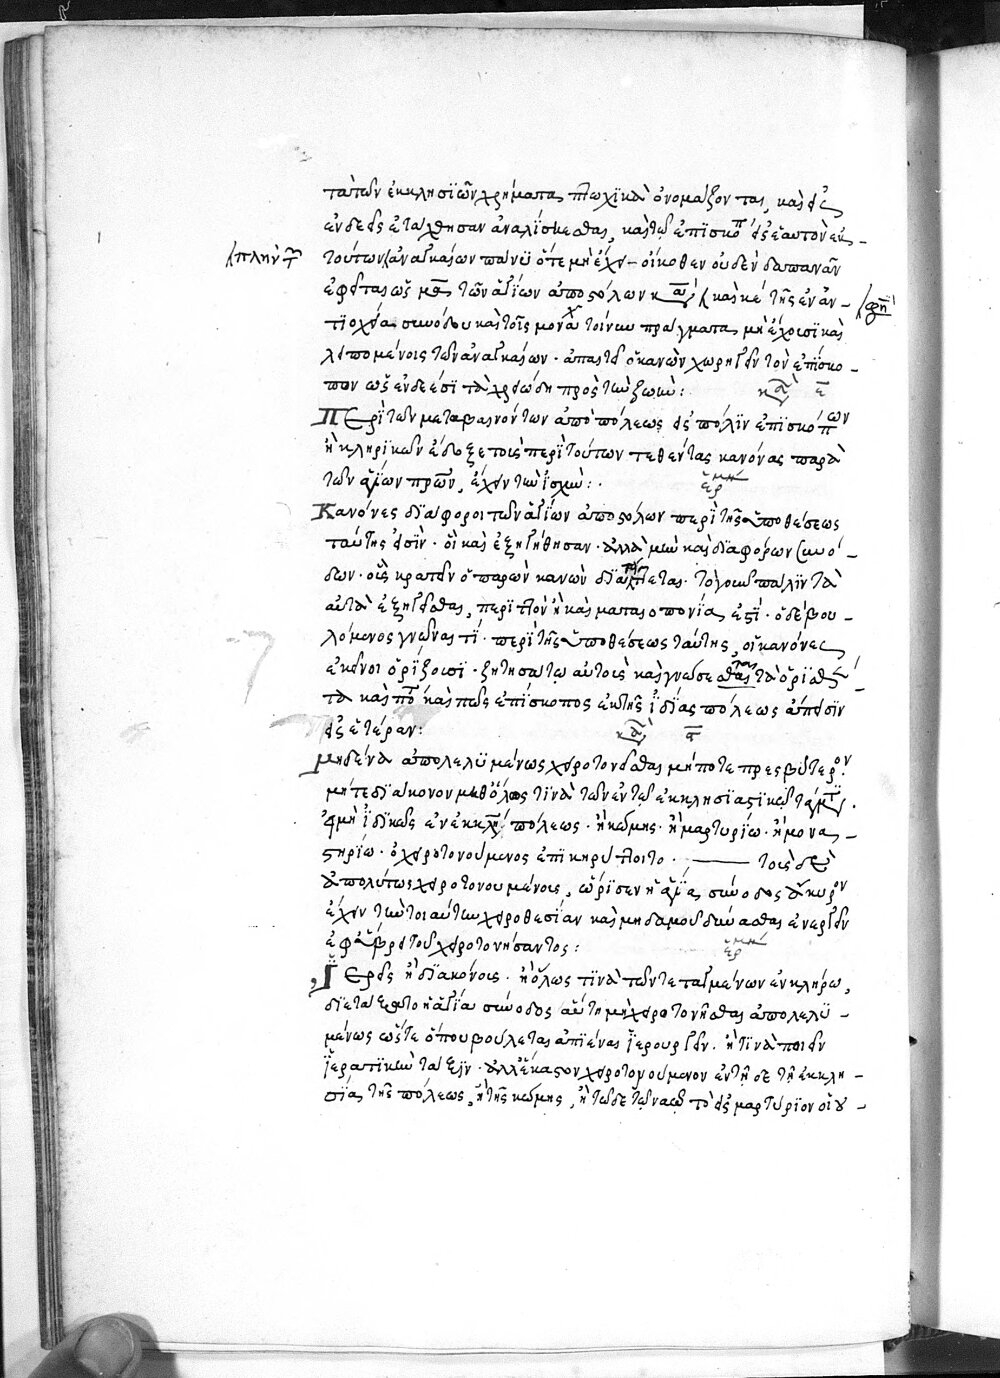 τὰ τῶν ἐκκλησιῶν χρήματα, πτωχικὰ ὀνομάζοντας, καὶ εἰς
ἐνδεεῖς ἐτάχθησαν ἀναλίσκεσθαι, καὶ τῷ ἐπισκόπ εἰς ἑαυτὸν ἐκ
πλὴν τ
τούτων ἀναγκαίων πάνυ ὅτε μὴ ἔχει οἴκοθεν οὐδὲν δαπανᾶν
ἐφεῖται ὡς τῶν ἁγίων ἀποστόλων καὶ κε τῆς ἐν ἀν-
φησὶ
τιοχεία συνόδου καὶ τοῖς μοναχ τοίνυν πράγματα μὴ ἔχουσι καὶ
λειπομένοις τῶν ἀναγκαίων. ἀπαιτεῖ ὁ κανὼν χωρηγεῖν τὸν ἐπίσκο-
πον ὡς ἐνδεέσι τὰ χρειώδη πρὸς τὴν ζωήν:
κα ε
Περὶ τῶν μεταβαινόντων ἀπὸ πόλεως εἰς πόλιν ἐπισκόπων
ἢ κληρικῶν ἔδοξε τοὺς περὶ τούτων τεθέντας κανόνας παρὰ
τῶν ἁγίων πρων, ἔχειν τὴν ἰσχύν:
ἑρμη
Κανόνες διάφοροι τῶν ἁγίων ἀποστόλων περὶ τῆς ὑποθέσεως
ταύτης εἰσὶν. οἳ καὶ ἐξηγήθησαν. ἀλλὰ μὴν καὶ διαφόρων συνό-
δων. οὓς κρατεῖν ὁ παρὼν κανὼν διατάττεται. τὸ γοῦν πάλιν τὰ
αὐτὰ ἐξηγεῖσθαι, περιττὸν ἢ καὶ ματαιοπονία ἐστί. ὁ δὲ βου-
λόμενος γνῶναί τι. περὶ τῆς ὑποθέσεως ταύτης, οἱ κανόνες
ἐκεῖνοι ὁρίζουσι. ζητησάτω αὐτοὺς καὶ γνώσεται τὰ ὁρισθέν-
τα καὶ καὶ πῶς ἐπίσκοπος ἐκ τῆς ἰδίας πόλεως ἄπεισιν
εἰς ἑτέραν:
κα
Μηδένα ἀπολελυμένως χειροτονεῖσθαι μήποτε πρεσβύτερον.
μήτε διάκονον μήθ' ὅλως τινὰ τῶν ἐν τῷ ἐκκλησιαστικῷ τάγματι.
εἰ μὴ ἰδικῶς ἐν ἐκκλη πόλεως. ἢ κώμης. ἢ μαρτυρίῳ. ἢ μονα-
στηρίῳ. ὁ χειροτονούμενος ἐπικηρύττοιτο. τοὺς δὲ
ἀπολύτως χειροτονουμένους, ὥρισεν ἡ ἁγία συνοδος ἄκυρον
ἔχειν τὴν τοιαύτην χειροθεσίαν καὶ μηδαμοῦ δύνασθαι ἐνεργεῖν
ἐφ' ὕβρει τοῦ χειροτονήσαντος:
ἑρμη
Ἱερεῖς ἢ διακόνους. ἢ ὅλως τινὰ τῶν τεταγμένων ἐν κλήρω,
διετάξατο ἡ ἁγία σύνοδος αὕτη μὴ χειροτονῆσθαι ἀπολελυ-
μένως ὥστε ὅπου βούλεται ἀπιέναι ἱερουργεῖν. ἤ τινὰ ποιεῖν
ἱερατικὴν τάξιν. ἀλλ' ἕκαστον χειροτονούμενον ἐν τῆδε τῆ ἐκκλη-
σία τῆς πόλεως, ἢ τῆς κώμης, ἢ τῶδε τῶ ναῶ τὸ εἰς μαρτύριον οἴ-